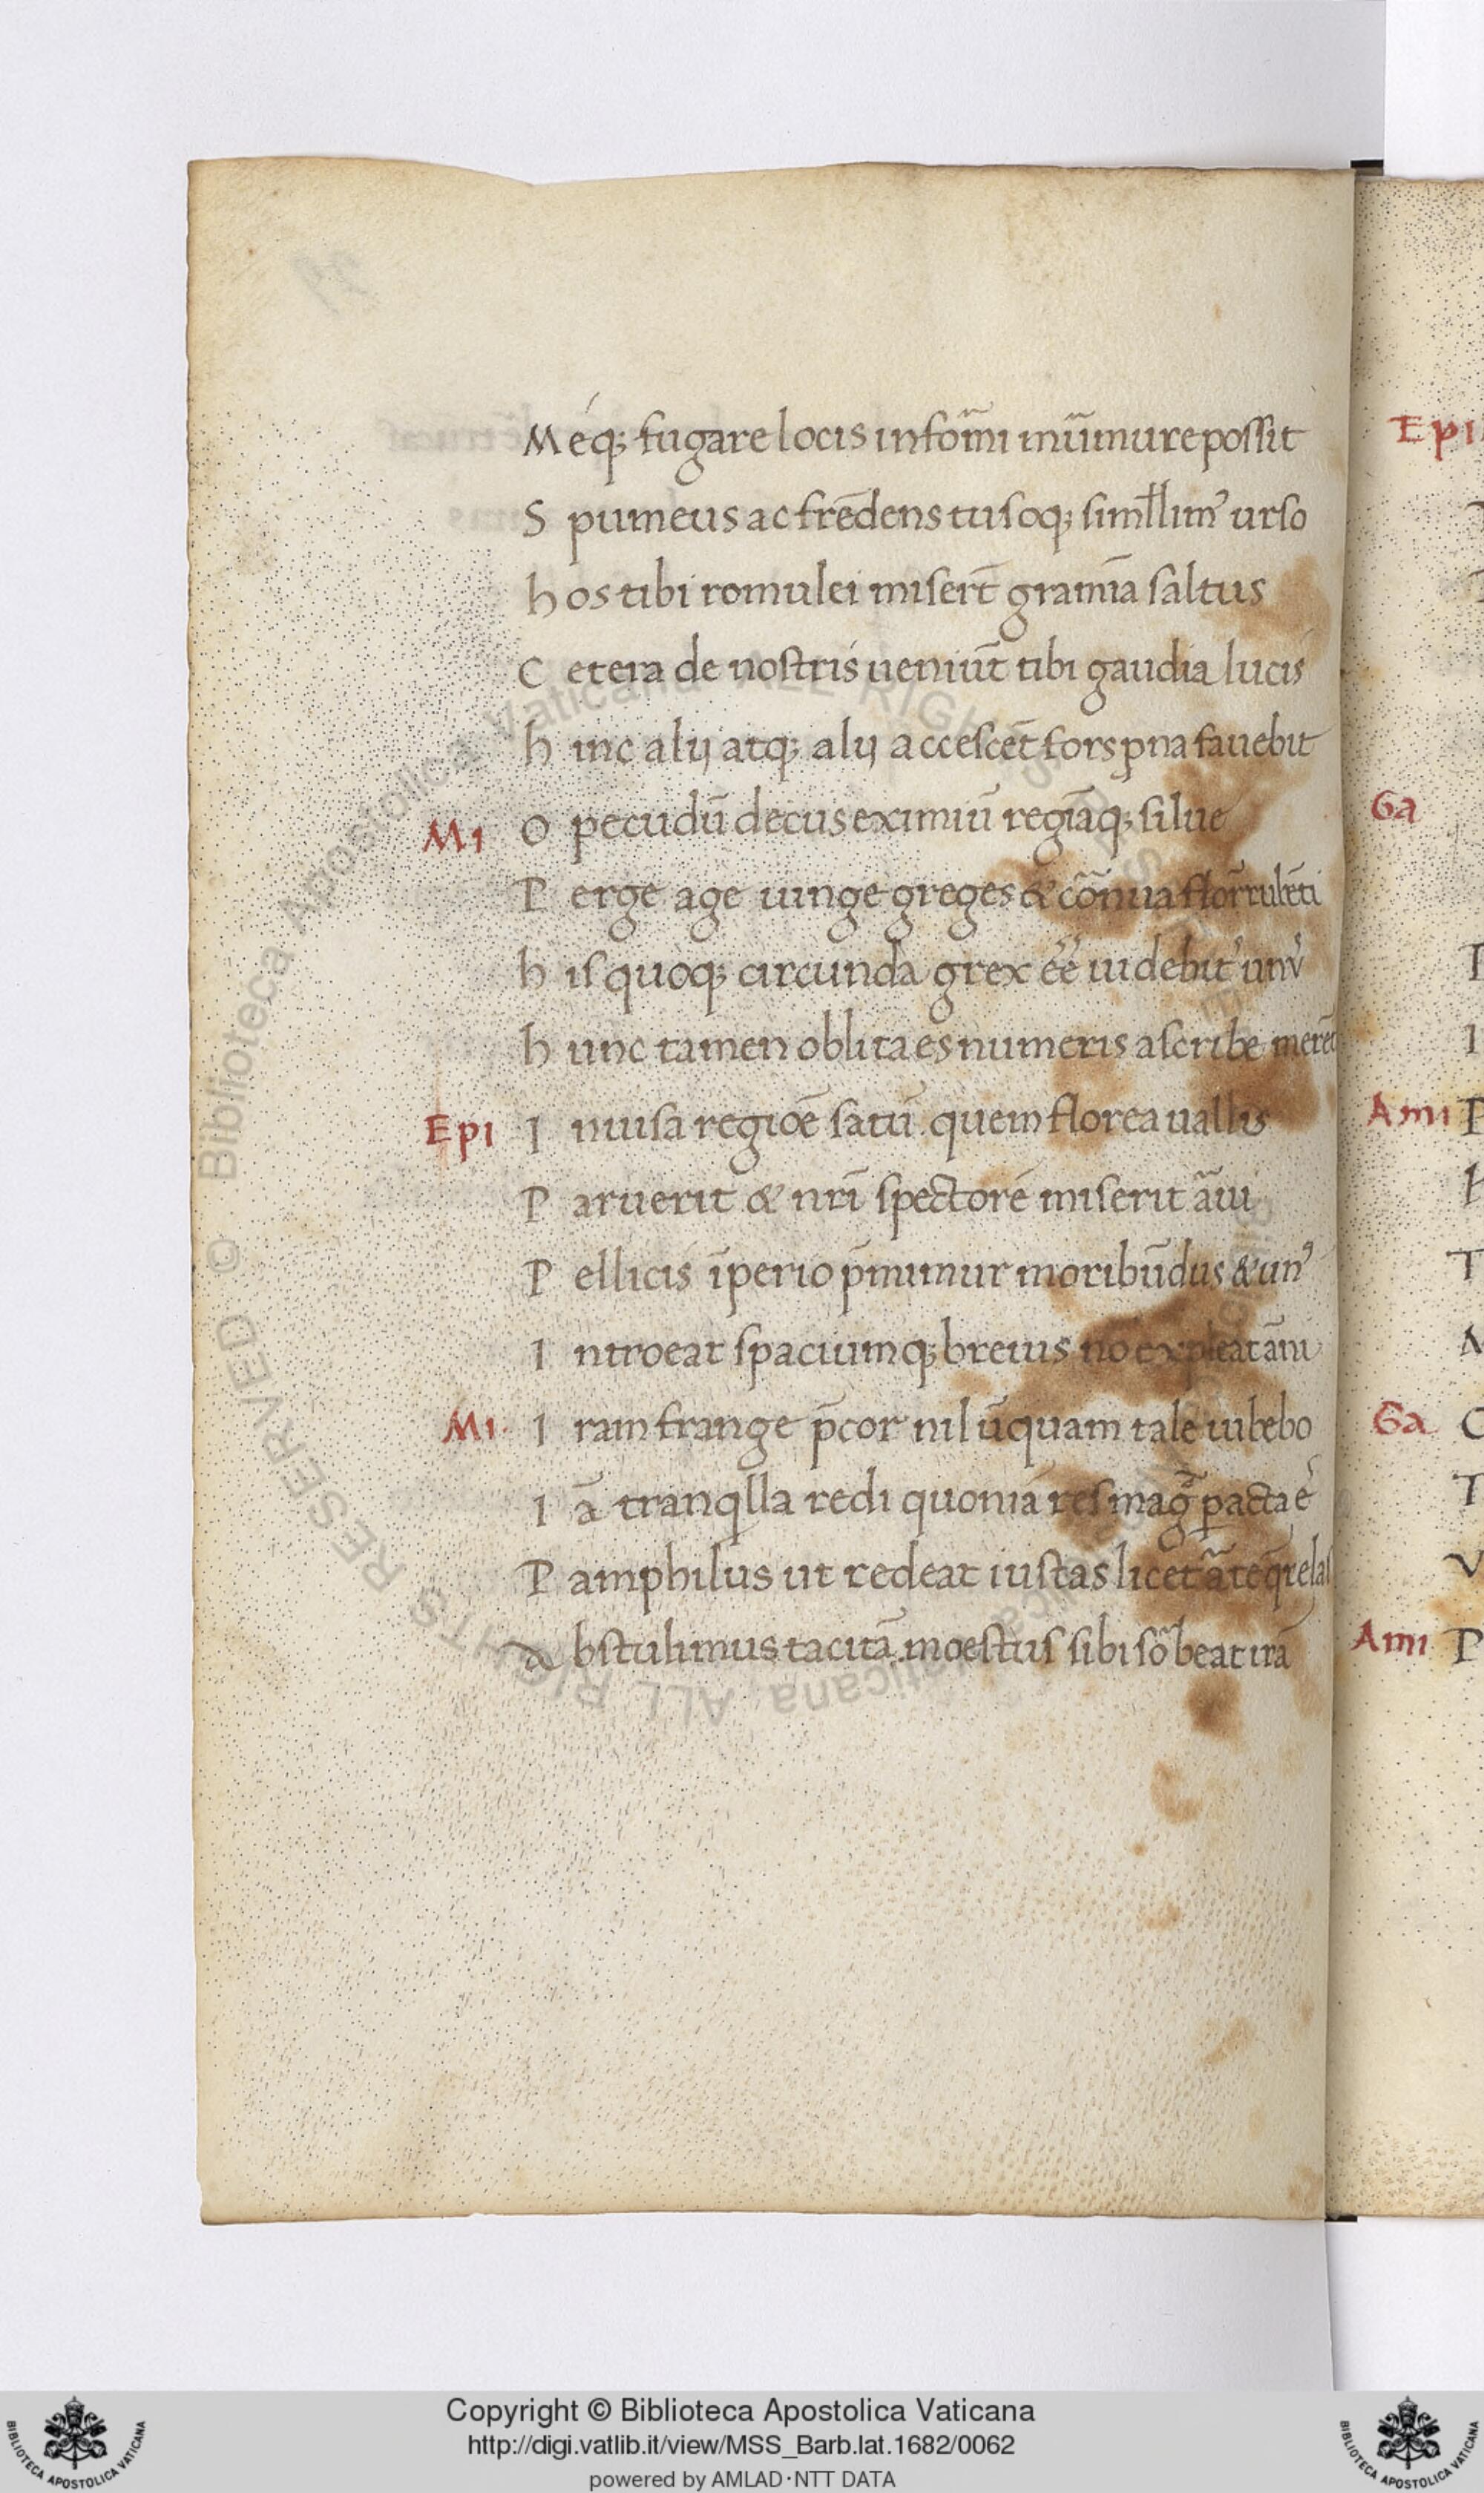 Meq; fugare locis infom̃i inũmure possit
Spumeus ac frẽdens tusoq; siml̃lim᾽ urso
hos tibi romulei misert̃ gramĩa saltus
Cetera de nostris ueniũt tibi gaudia lucis
hinc alij atq; alij accescẽt fors p̱na fauebit
Mi O pecudũ decus eximiũ regiãq; silue
Perge age iunge greges & cõ
his quoq; circunda grex ẽe uidebit᾽ un᾽
hunc tamen oblita es numeris ascribe merẽt
Epi Inuisa regiõe satũ quem florea uallis
Paruerit & nr̃i spectorẽ miserit ãui
Pellicis ĩperio p̃mimur moribũdus & un᾽
Introeat spaciumq; breuius nõ expleat ãni
Mi. Iram frange p̃cor nil ũquam tale iubebo
Iã tranqlla redi quoniã res mag̃ pacta ẽ
Pamphilus ut redeat iustas licet ãte q̃relas
Abstulimus tacitã moestus sibi sõbeat irã
Epi
Ga
Ami
Ga
Ami
Copyright © Biblioteca Apostolica Vaticana
http://digi.vatlib.it/view/MSS_Barb.lat.1682/0062
powered by AMLAD·NTT DATA
BIBLIOTECA APOSTOLICA VATICANA
BIBLIOTECA APOSTOLICA VATICANA